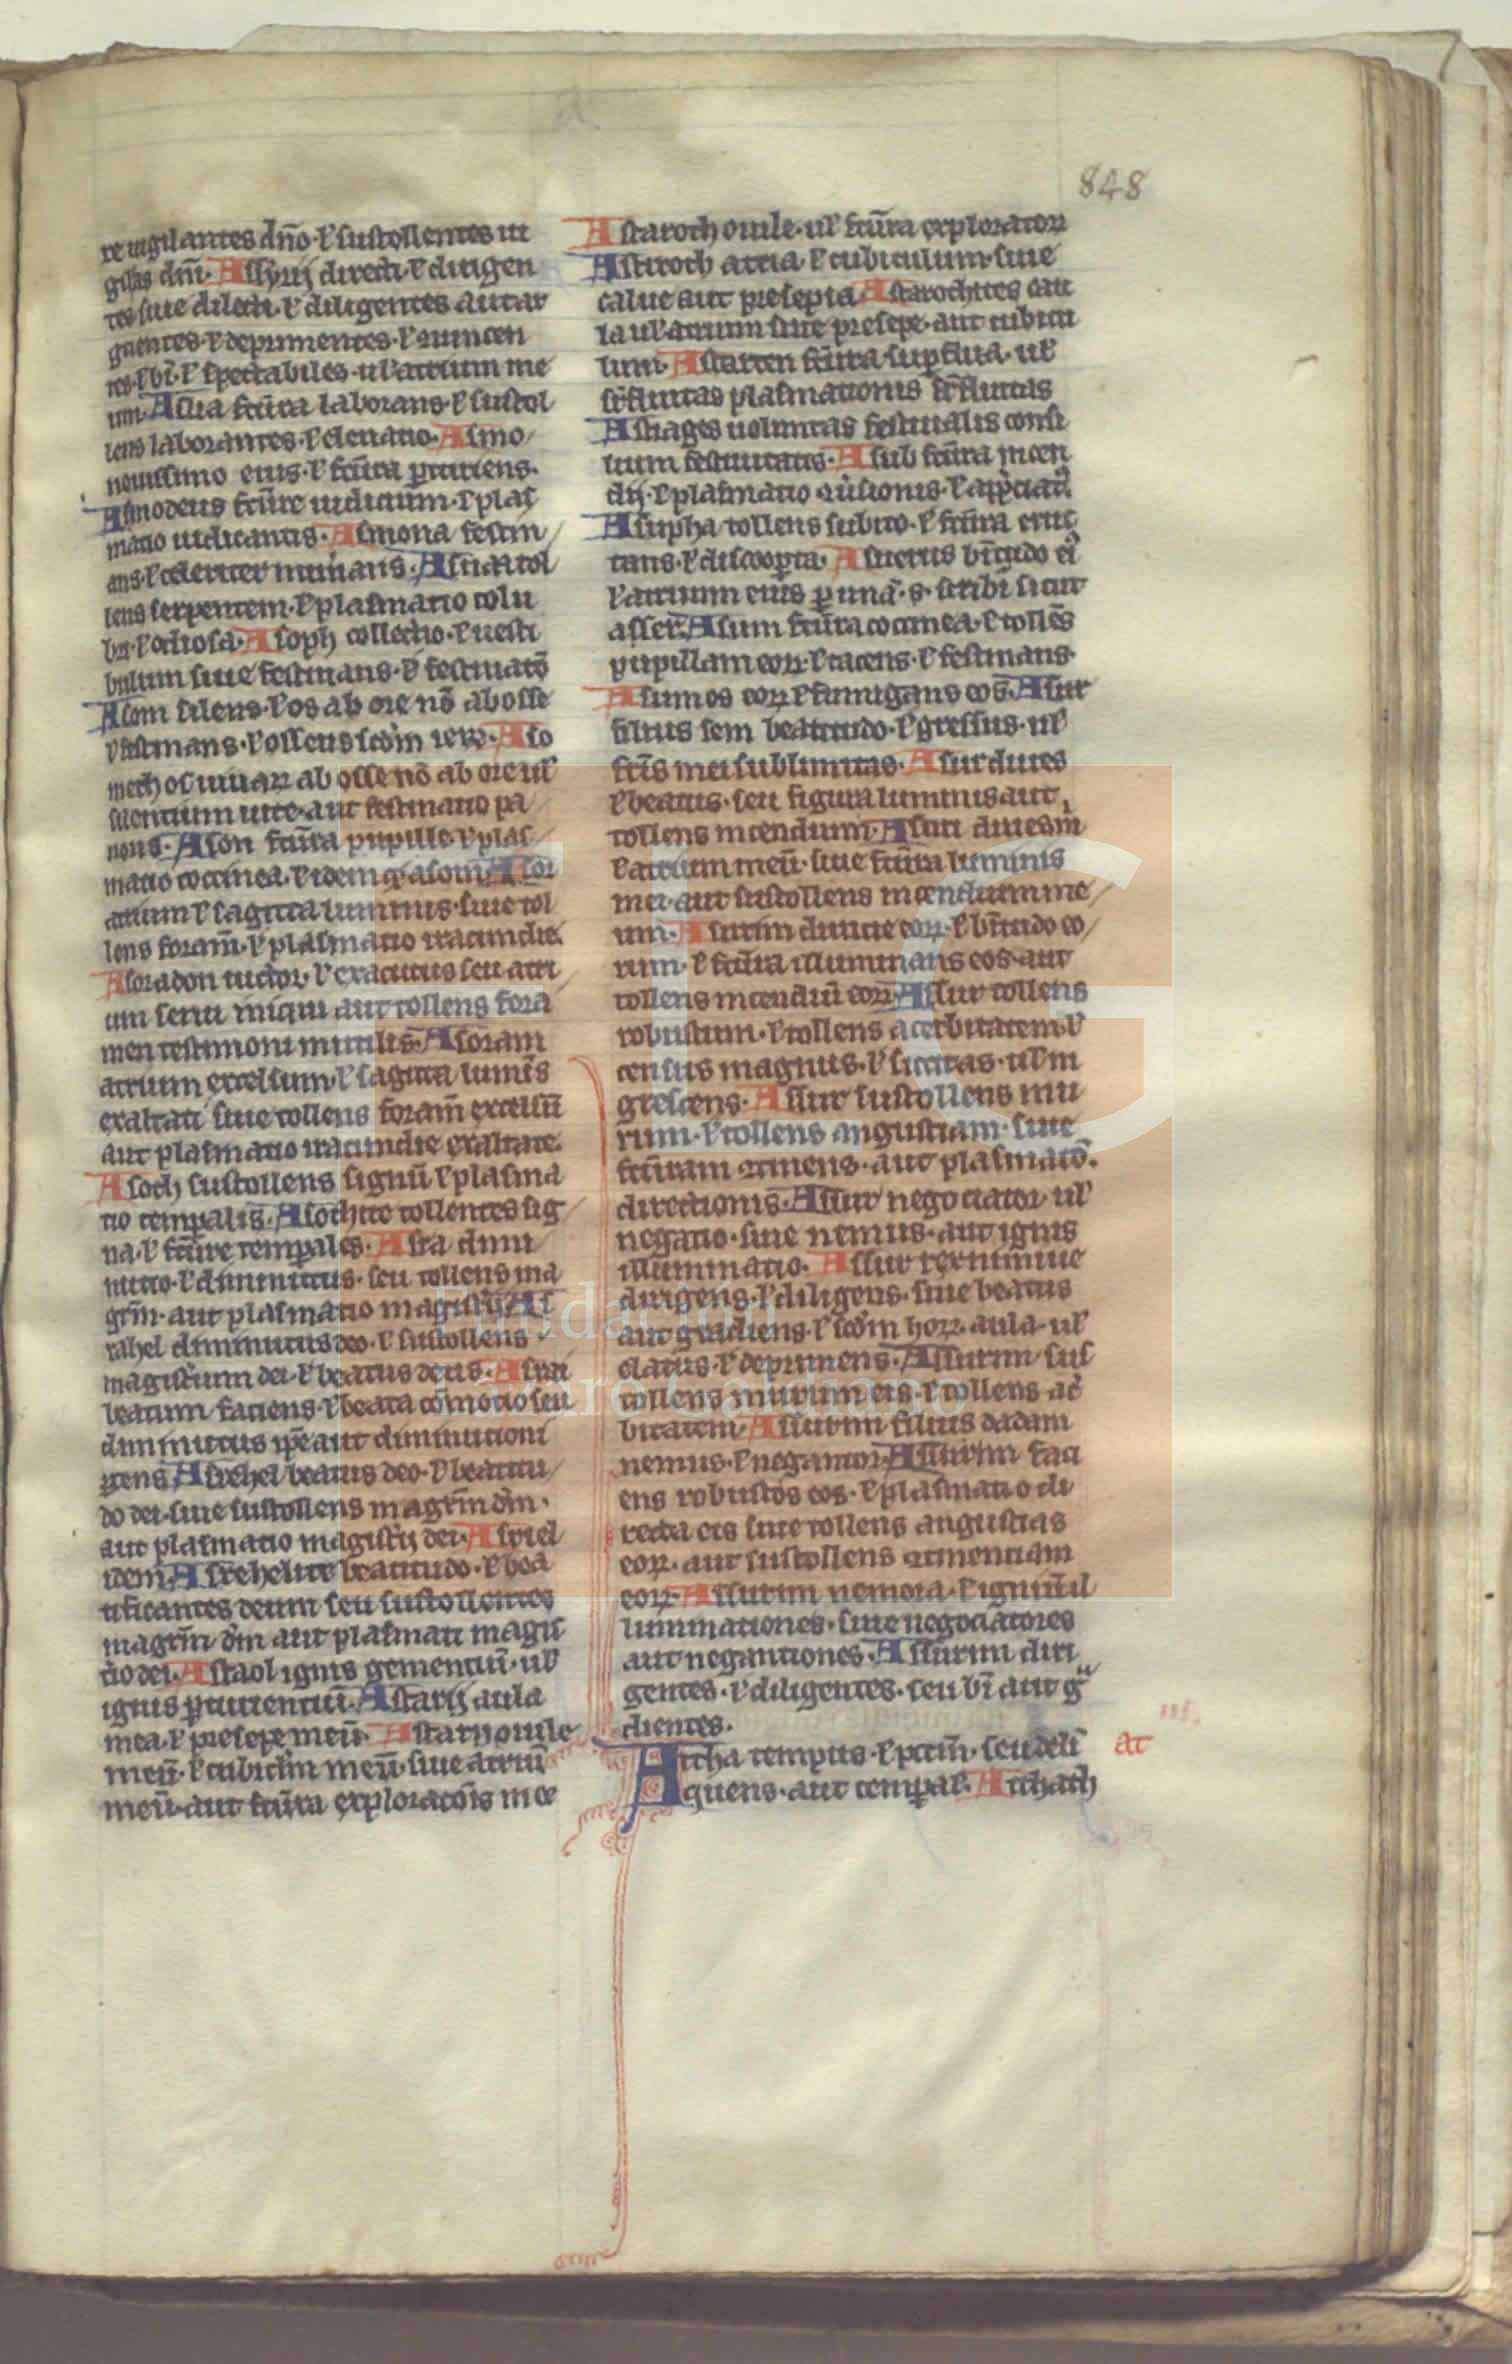 848
re uigilantes dño ł sustollentes ui
gilias dñi. Assyrij directi ł dirigen
tes siue dilecti ł diligentes aut ar
guentes ł deprimentes ł
tes ł bī ł spectabiles ul atrium me
um. Asua fcūra laborans ł sustol
lens laborantes ł eleuatio. Asmo
nouissimo eius ł fcūra parturiens.
Asmodeus fcūre iudicium ł plas
matio iudicantis. Asmona festin
ans ł celeriter numerans. Asna tol
lens serpentem ł plasmatio colu
bri ł odiosa. Asoph collectio ł uesti
bulum siue festinans ł festinatō
Asom silens ł os ab ore nō ab osse
ł festinans ł osseus scd'm iero. Aso
meth os iuuar ab osse nō ab ore ul
silentium uite aut festinatio pa
nons. Ason fcūra pupille ł plas
matio coccinea ł idem qd asom. Asor
atrium ł sagitta luminis siue tol
lens foram̄ ł plasmatio iracundie.
Asoradon ł exacutus seu atri
um serui iniqui aut tollens fora
men testimonii inutilis. Asoram
atrium excelsum ł sagitta lumīs
exaltati siue tollens foram̄ excelsū
aut plasmatio iracundie exaltate.
Asoch sustollens signū ł plasma
tio temp̄alis. Asothite tollentes sig
na ł fcūre temp̄ales. Asra dimi
nutio ł diminutus seu tollens ma
grīn aut plasmatio magistrij. As
rahel diminutus deo ł sustollens
magistrum dei ł beatus deus. Asrai
beatum faciens ł beata cōmotio seu
diminutus ip̄e aut diminutioni
gens. Asrehel beatus deo ł beatitu
do dei siue sustollens magrīn dīn
aut plasmatio magistrij dei. Asriel
idem. Asrehelite beatitudo ł bea
tificantes deum seu sustollentes
magrīn dīn aut plasmati magis
tio dei. Astaol ignis gementiū ul
ignis parturientiū. Astarij aula
mea ł presepe meū. Astaryouile
meū ł cubiclīn meū siue atriū
meū aut fcūra exploratōis mee
Astaroth ouile ul fcūra exploratorū
Astiroth atria ł cubiculum siue
calue aut presepia. Astarothites cau
la ul atrium siue presepe aut cubicu
lum. Astarten fcūra supflua ul
sr̄fluitas plasmationis sr̄fluitas
Astrages uoluntas festiualis consi
lium festiuitatis. Asub fcūra incen
dij ł plasmatio
Asupha tollens subito ł fcūra eruc
tans ł discooperta. Asuerus btitudo eī
ł atrium eius per unā s. scribi sicut
asser. Asum fcūra coccinea ł tollēs
pupillam eorū ł tacens ł festinans
Asum os eorū ł fumigans eos. Asur
filius sem beatitudo ł gressus ul
fcīs mei sublimitas. Asur diues
ł beatus seu figura luminis aut
tollens incendium. Asuri diues m̄
ł atrium meū siue fcūra luminis
mei aut sustollens incendium me
um. Asurim diuitie eorū ł btitudo eo
rum ł fcūra illuminans eos aut
tollens incendiū eorū. Assur tollens
robustum ł tollens acerbitatem ł
census magnus ł siccitas ul in
grescens. Assur sustollens mu
rum ł tollens angustiam siue
fcūram 9tinens aut plasmatō.
directionis. Assur negociator ul
negatio siue nemus aut ignis
illuminatio. Assur
dirigens ł diligens siue beatus
aut gradiens ł scd'm horū aula ul
elatus ł deprimens. Assurim sus
tollens murum eis ł tollens ac̄
bitatem. Assurim filius dadam
nemus ł negantior. Assurim faci
ens robustos eos ł plasmatio di
recta eis siue tollens angustias
eorū aut sustollens 9tinentiam
eorū. Assurim nemora ł igniū il
luminationes siue negociatores
aut negantiones. Assurimi diri
gentes ł diligentes seu bī aut gra
dientes.
at
Atcha tempus ł ptim̄ seu deli
quens aut temp̄al. Atchath